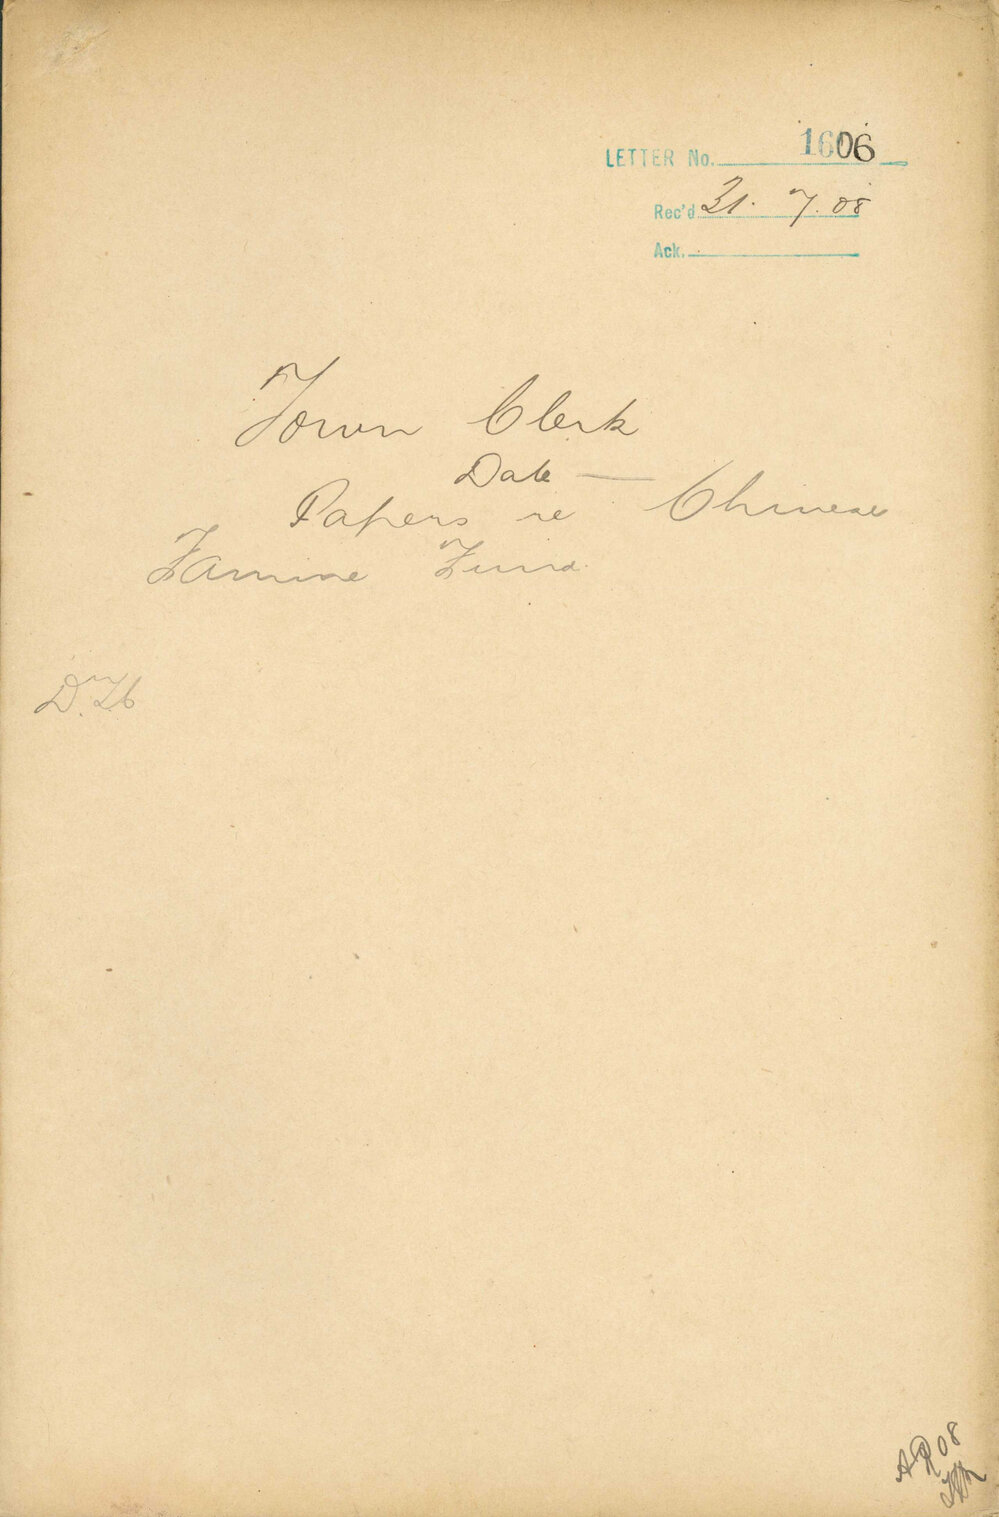 LETTER No. 1606
Rec'd 31. 7. 08
Ack.
Town Clerk
Date —
Papers re Chinese
Famine Fund
AR 08